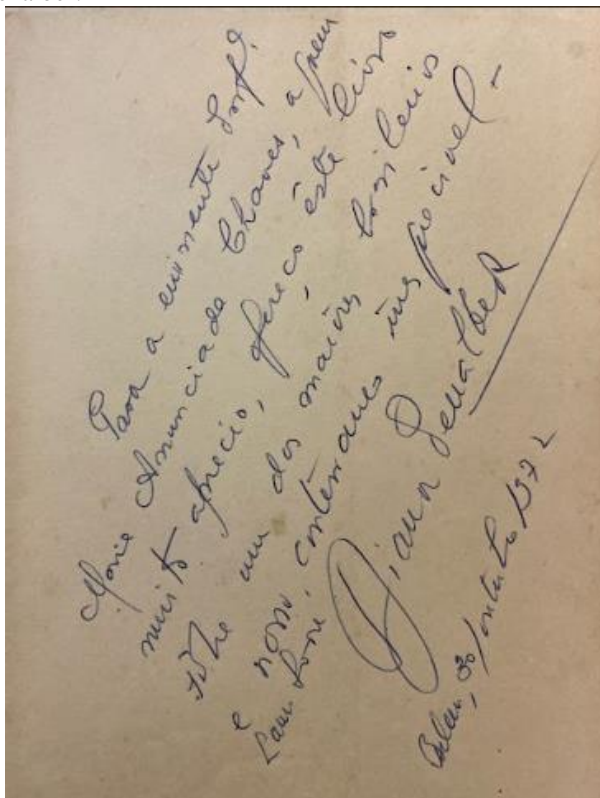 Para a eminente Profª.
Maria Anunciada Chaves, a quem
muito aprecio, ofereço êste livro
sôbre um dos maiores brasileiros
e nosso conterrâneo
Belém, 30/outubro 1972